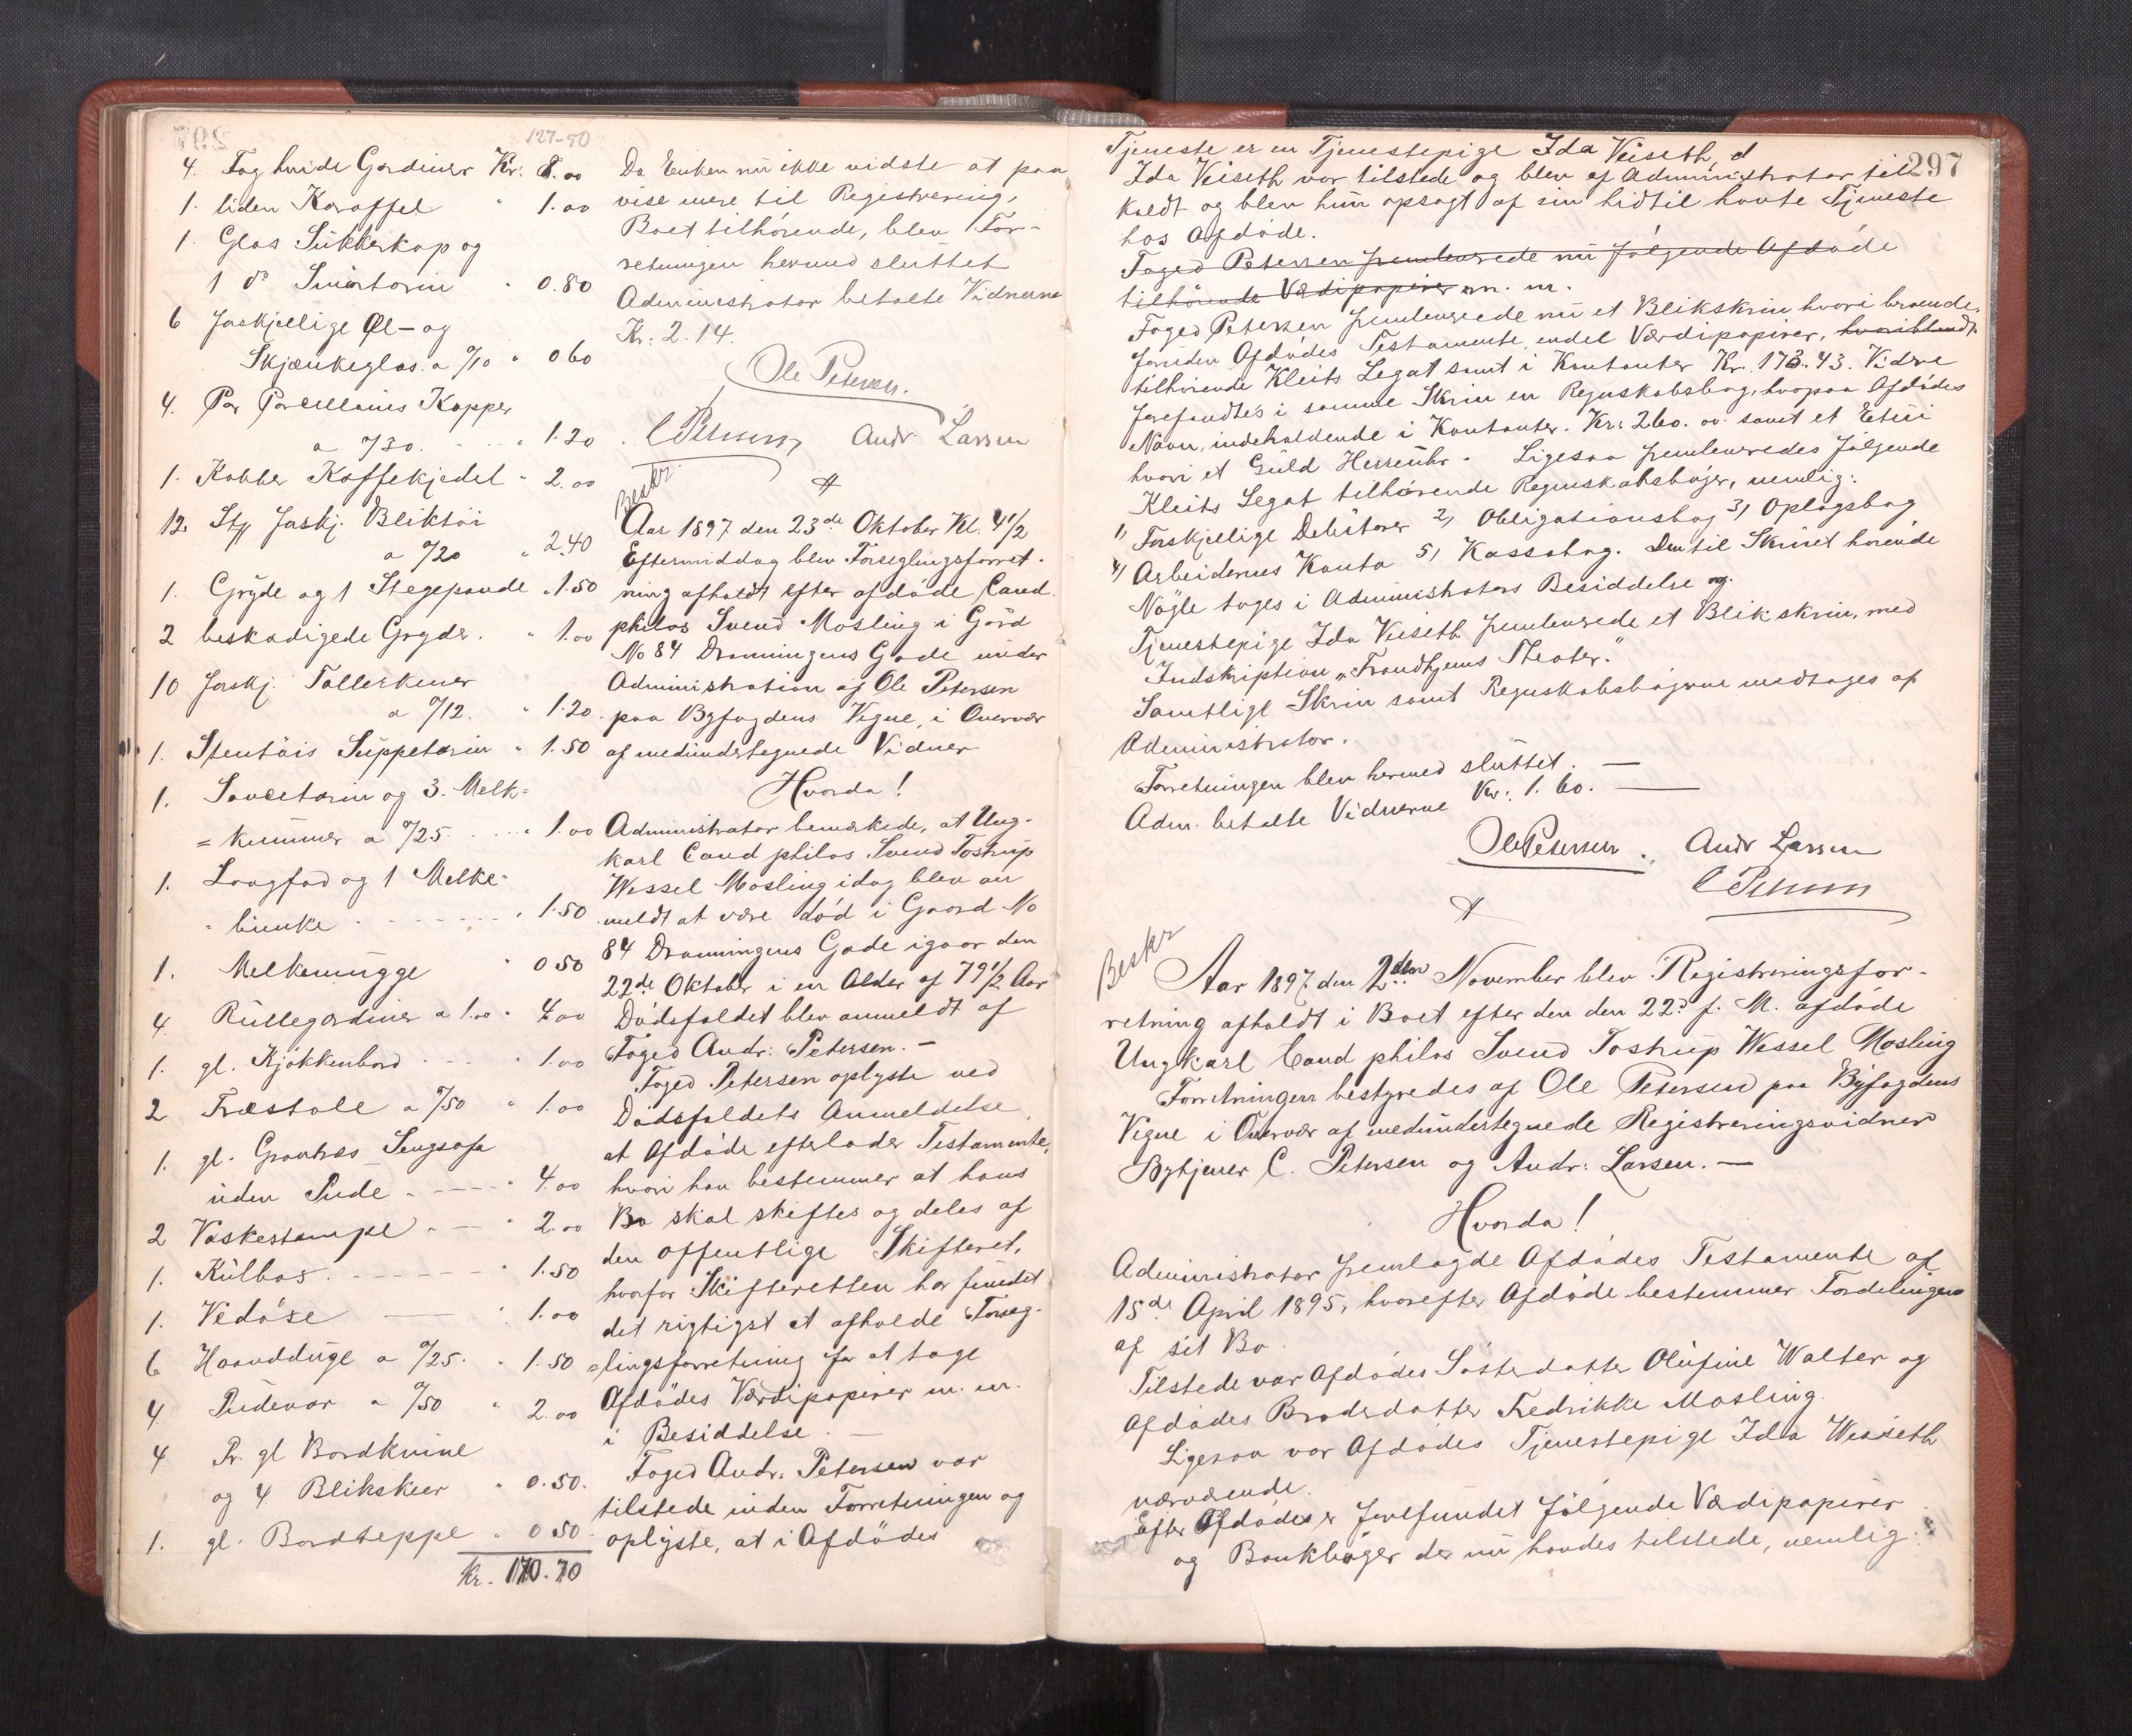 127-50
4. Fag hvide Gardiner Kr. 8.00
1. liden Karaffel " 1.00
1. Glas Sukkerkop og
1 do Smörterin " 0.80
6 forskjellige Øl- og
Skjænkeglas a 0/10 " 0 60
4. Par Porcellains Kopper
a 0/30. " 1.20
1. Kobber Kaffekjedel " 2.00
12. Stk forskj. Bliktöi
a 0/20 " 2.40
1. Gryde og 1 Stegepande " 1.50
2 beskadigede Gryder. " 1.00
10 forskj. Tallerkener
a 0/12. " 1.20
1. Stentöis Suppeterin " 1.50
1. Sauceterin og 3. Melk=
= kummer a 0/25. " 1.00
1. Langfad og 1 Melke-
- bunke " 1.50
1. Melkemugge " 0 50
4. Rullegardiner a 1.00 " 4.00
1. gl. Kjökkenbord " 1.00
2 Træstole a 0/50 " 1.00
1. gl. Sengsofa
uden Pude " 4.00
2 Vaskestampe " 2.00
1. Kulbox " 1.50
1. Vedöxe " 1.00
6 Haandduge a 0/25. " 1.50
4 Pudevar a 0/50 " 2.00
4 Pr. gl Bordknive
og 4 Blikskeer " 0.50.
1. gl. Bordteppe " 0.50
Kr. 170.70
Da Enken nu ikke vidste at paa
vise mere til Registrering,
Boet tilhörende, blev For-
retningen hermed sluttet
Administrator betalte Vidnerne
Kr: 2.14.
Ole Petersen.
C Petersen Andr. Larsen
Beskr.
Aar 1897 den 23de Oktober Kl. 4 1/2
Eftermiddag blev Forseglingsforret-
ning afholdt efter afdöde Cand.
philos Svend Mosling i Gård
No 84 Dronningens Gade under
Administration af Ole Petersen
paa Byfogdens Vegne, i Overvær
af medundertegnede Vidner
Hvorda!
Administrator bemærkede, at Ung-
karl Cand philos Svend Tostrup
Wessel Mosling idag blev an
meldt at være död i Gaard No
84 Dronningens Gade igaar den
22de Oktober i en Alder af 79 1/2 Aar
Dödsfaldet blev anmeldt af
Foged Andr: Petersen. —
Foged Petersen oplyste ved
Dödsfaldets Anmeldelse,
at Afdöde efterlader Testamente,
hvori han bestemmer at hans
Bo skal skiftes og deles af
den offentlige Skifteret,
hvorfor Skifteretten har fundet
det rigtigst at afholde Forseg-
=lingsforretning for at tage
Afdödes Værdipapirer m. m.
i Besiddelse. —
Foged Andr: Petersen var
tilstede under Forretningen og
oplyste, at i Afdödes
297
Tjeneste er en Tjenestepige Ida Veiseth,
Ida Veiseth var tilstede og blev af Administrator til
kaldt og blev hun opsagt af sin hidtil havte Tjeneste
hos Afdöde.
Foged Petersen fremleverede nu fölgende Afdöde
tilhörende Værdipapirer m. m.
Foged Petersen fremleverede nu et Blikskrin hvori beroende,
foruden Afdödes Testamente, endel Værdipapirer, hvoriblandt
tilhörende Kleits Legat samt i Kontanter Kr. 173.43. Videre
forefandtes i samme Skrin en Regnskabsbog, hvorpaa Afdödes
Navn, indeholdende i Kontanter. Kr: 260. 00. samt et Etui
hvori et Guld Herreuhr. Ligesaa fremleveredes fölgende
Kleits Legat tilhörende Regnskabsböger, nemlig:
1) Forskjellige Debitorer 2) Obligationsbog 3) Oplagsbog
4) Arbeidernes Konto 5) Kassabog. Den til Skrinet hörende
Nögle toges i Administrators Besiddelse og.
Tjenestepige Ida Veiseth fremleverede et Blikskrin, med
Indskription „Trondhjems Theater."
Samtlige Skrin samt Regnskabsbögerne modtages af
Administrator.
Forretningen blev hermed sluttet. —
Adm. betalte Vidnerne Kr: 1. 60. —
Ole Petersen. Andr Larsen
C Petersen
Beskr
Aar 1897 den 2den November blev Registreringsfor-
retning afholdt i Boet efter den den 22d f. M. afdöde
Ungkarl Cand philos Svend Tostrup Wessel Mosling
Forretningen bestyredes af Ole Petersen paa Byfogdens
Vegne i Overvær af medundertegnede Registreringsvidner
Bytjener C. Petersen og Andr: Larsen. —
Hvorda!
Administrator fremlagde Afdödes Testamente af
15de April 1895, hvorefter Afdöde bestemmer Fordelingen
af sit Bo.
Tilstede var Afdödes Sösterdatter Olufine Walter og
Afdödes Broderdatter Fredrikke Mosling.
Ligesaa var Afdödes Tjenestepige Ida Weiseth
nærværende.
Efter Afdöde er forefundet fölgende Værdipapirer
og Bankböger der nu havdes tilstede, nemlig: